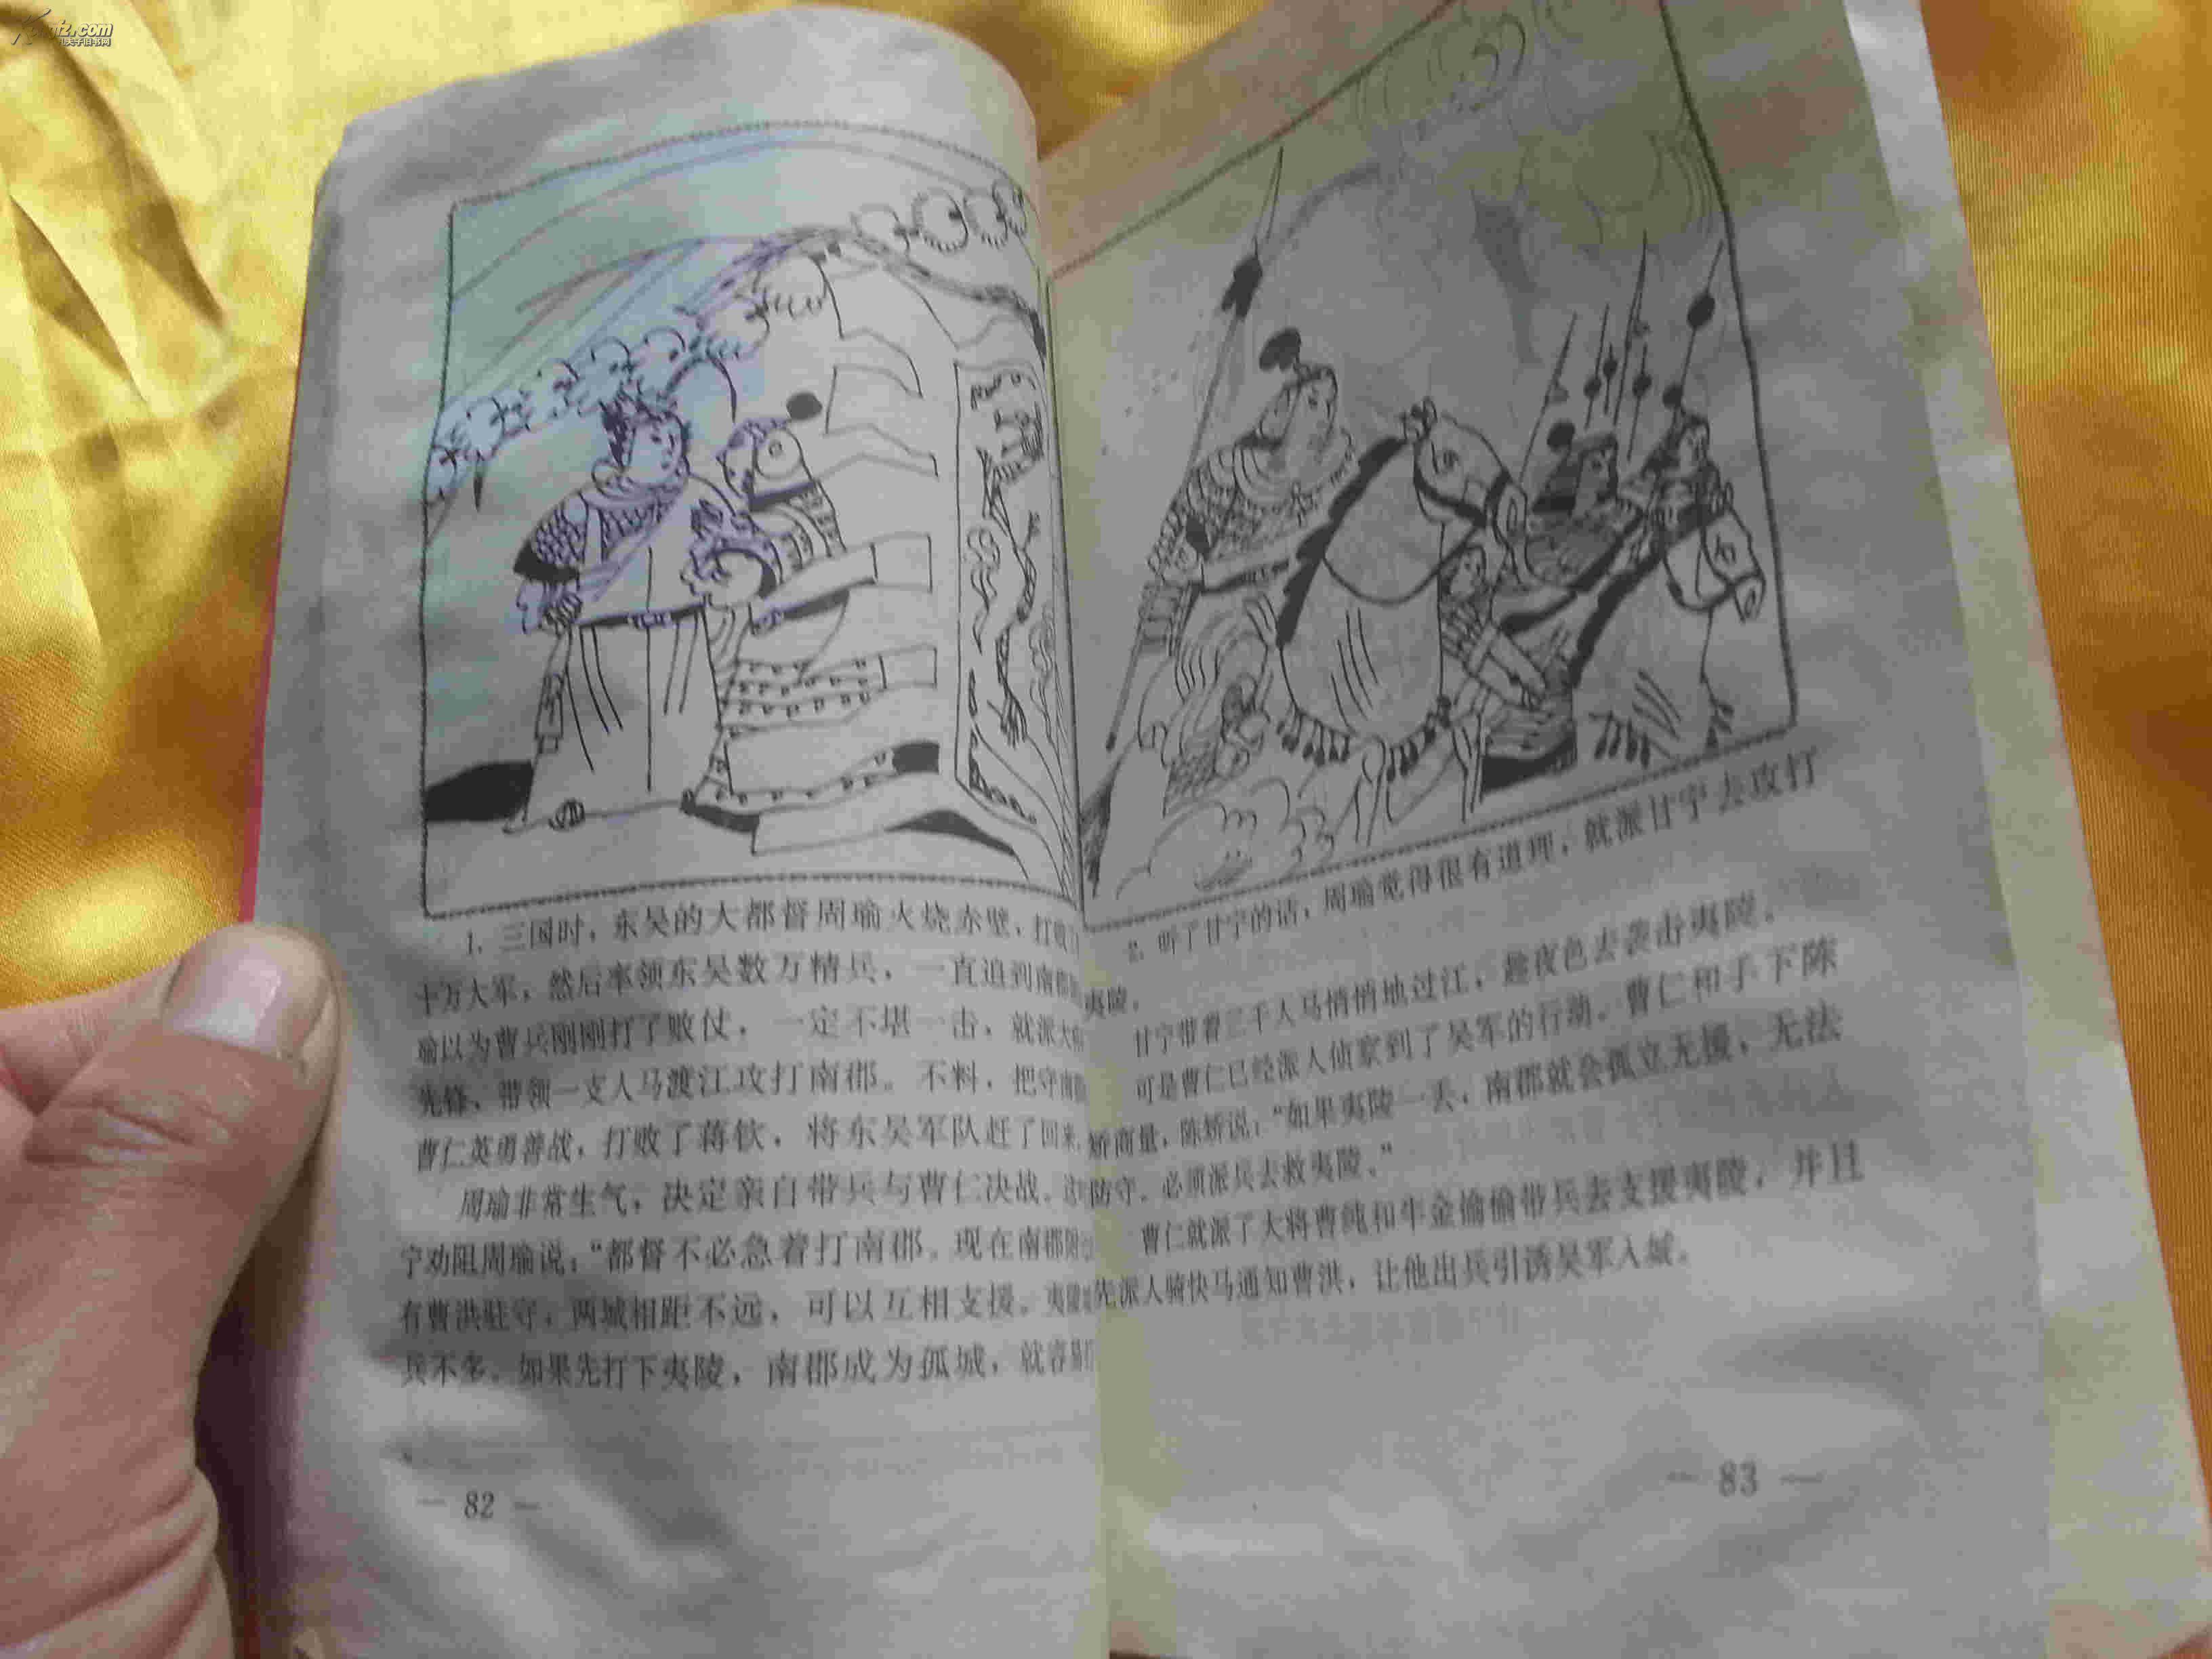 1. 三国时，东吴的大都督周瑜火烧赤壁，打败
十万大军，然后率领东吴数万精兵，一直追到南郡
瑜以为曹兵刚刚打了败仗，一定不堪一击，就派大
先锋，带领一支人马渡江攻打南郡。不料，把守南
曹仁英勇善战，打败了蒋钦，将东吴军队赶了回来
周瑜非常生气，决定亲自带兵与曹仁决战。
宁劝阻周瑜说：“都督不必急着打南郡。现在南郡
有曹洪驻守，两城相距不远，可以互相支援。夷陵
兵不多。如果先打下夷陵，南郡成为孤城，就容易
— 82 —
2. 听了甘宁的话，周瑜觉得很有道理，就派甘宁去攻打
夷陵。
甘宁带着三千人马悄悄地过江，趁夜色去袭击夷陵。
可是曹仁已经派人侦察到了吴军的行动。曹仁和手下陈
矫商量，陈矫说：“如果夷陵一丢，南郡就会孤立无援，无法
防守。必须派兵去救夷陵。”
曹仁就派了大将曹纯和牛金偷偷带兵去支援夷陵，并且
先派人骑快马通知曹洪，让他出兵引诱吴军入城。
— 83 —